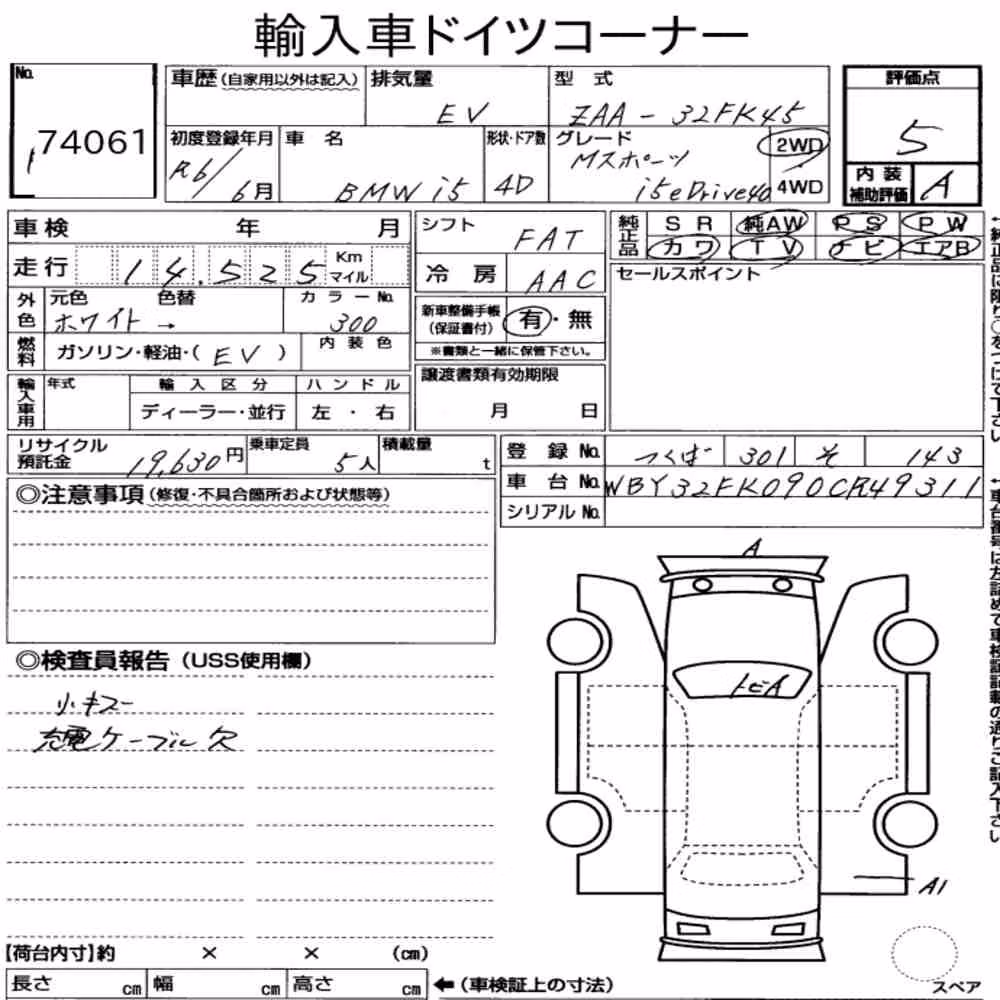 輸入車ドイツコーナー
No.
74061
車歴(自家用以外は記入)
排気量
EV
型 式
ZAA-32FK45
評価点
5
初度登録年月
R6/6月
車 名
BMW i5
形状・ドア数
4D
グレード
Mスポーツ
i5 eDrive40
2WD
4WD
内装
補助評価
A
車検 年 月
走行 14,525 Km
マイル
シフト
FAT
冷 房
AAC
純正品
SR 純AW PS PW
カワ TV ナビ エアB
セールスポイント
外色
元色 色替
ホワイト→
カラーNo.
300
燃料
ガソリン・軽油・( EV )
内装色
新車整備手帳
(保証書付)
有・無
※書類と一緒に保管下さい。
譲渡書類有効期限
月 日
輸入車用
年式
輸入区分
ディーラー・並行
ハンドル
左・右
リサイクル
預託金
19,630円
乗車定員
5人
積載量
t
登 録 No.
つくば 301 そ 143
車 台 No.
WBY32FK090CR49311
シリアルNo.
◎注意事項(修復・不具合箇所および状態等)
◎検査員報告(USS使用欄)
小キズー
充電ケーブル欠
A
トビA
A1
スペア
【荷台内寸】約 × × (cm)
長さ cm 幅 cm 高さ cm
←(車検証上の寸法)
←純正品に限り○をつけて下さい
←車台番号は左詰めで車検証記載の通りご記入下さい